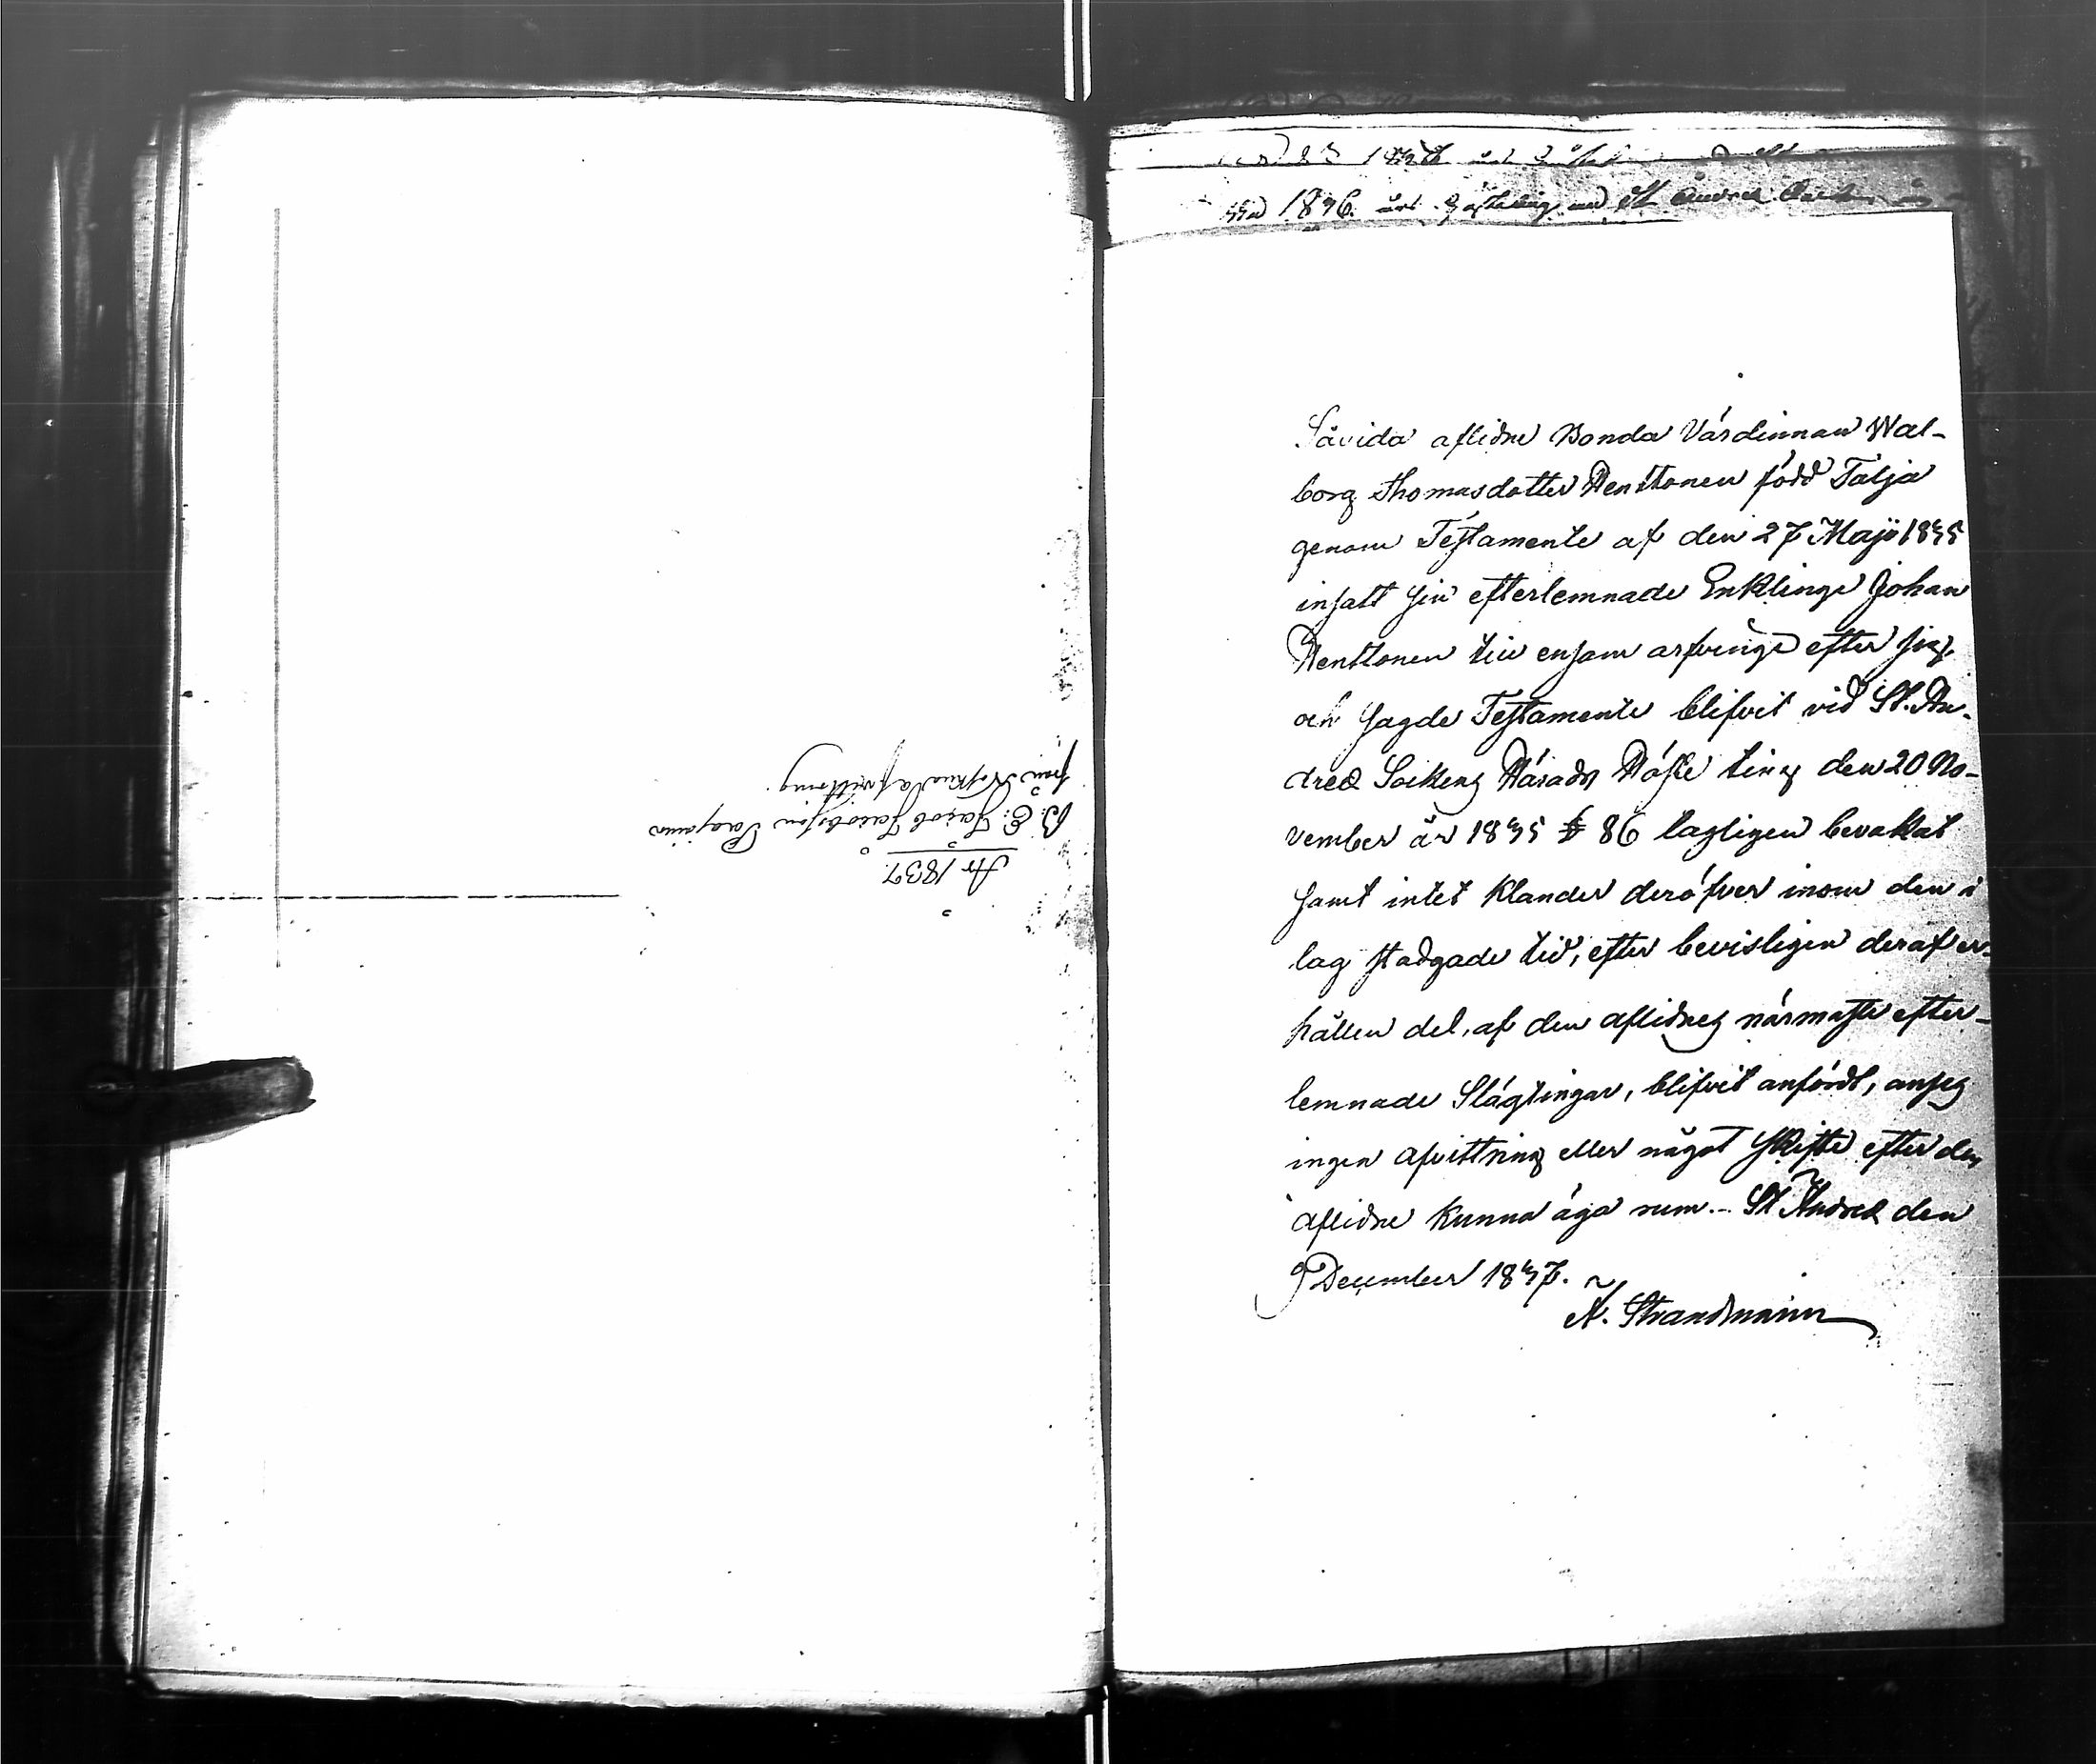 År 1837.
B: E: Jacob Jacobsson Parjanen
från Nokuala fvittring.
1836 års
Såvida aflidne Bonda Värdinnan Wal-
borg Thomasdotter Henttonen född Talja
genom Testamente af den 27 Maji 1835
insatt sin efterlemnade Enkling Johan
Henttonen till ensam arfvinge efter sig,
och sagde Testamente blifvit vid St. An-
dreæ Sockens Härads Höste ting den 20 No-
vember år 1835 § 86 lagligen bevakat
samt intet klander deröfver inom den i
lag stadgade tid, efter bevisligen deraf er-
hållen del, af den aflidnes närmaste efter-
lemnade Slägtingar, blifvit anfördt, anses
ingen afvittring eller något skifte efter den
aflidne kunna äga rum. - St Andreæ den
9 December 1837.
A. Strandmann